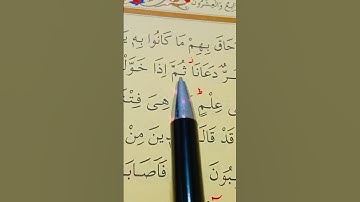 وَالْعِشْرُونَ
حَاقَ بِهِمْ مَا كَانُوا بِهِ
ضُرٌّ دَعَانَا ثُمَّ إِذَا خَوَّلْ
عِلْمٍ هِىَ فِتْنَ
قَدْ قَالَ ذِينَ مِنْ
سِبُونَ فَاَصَابَ